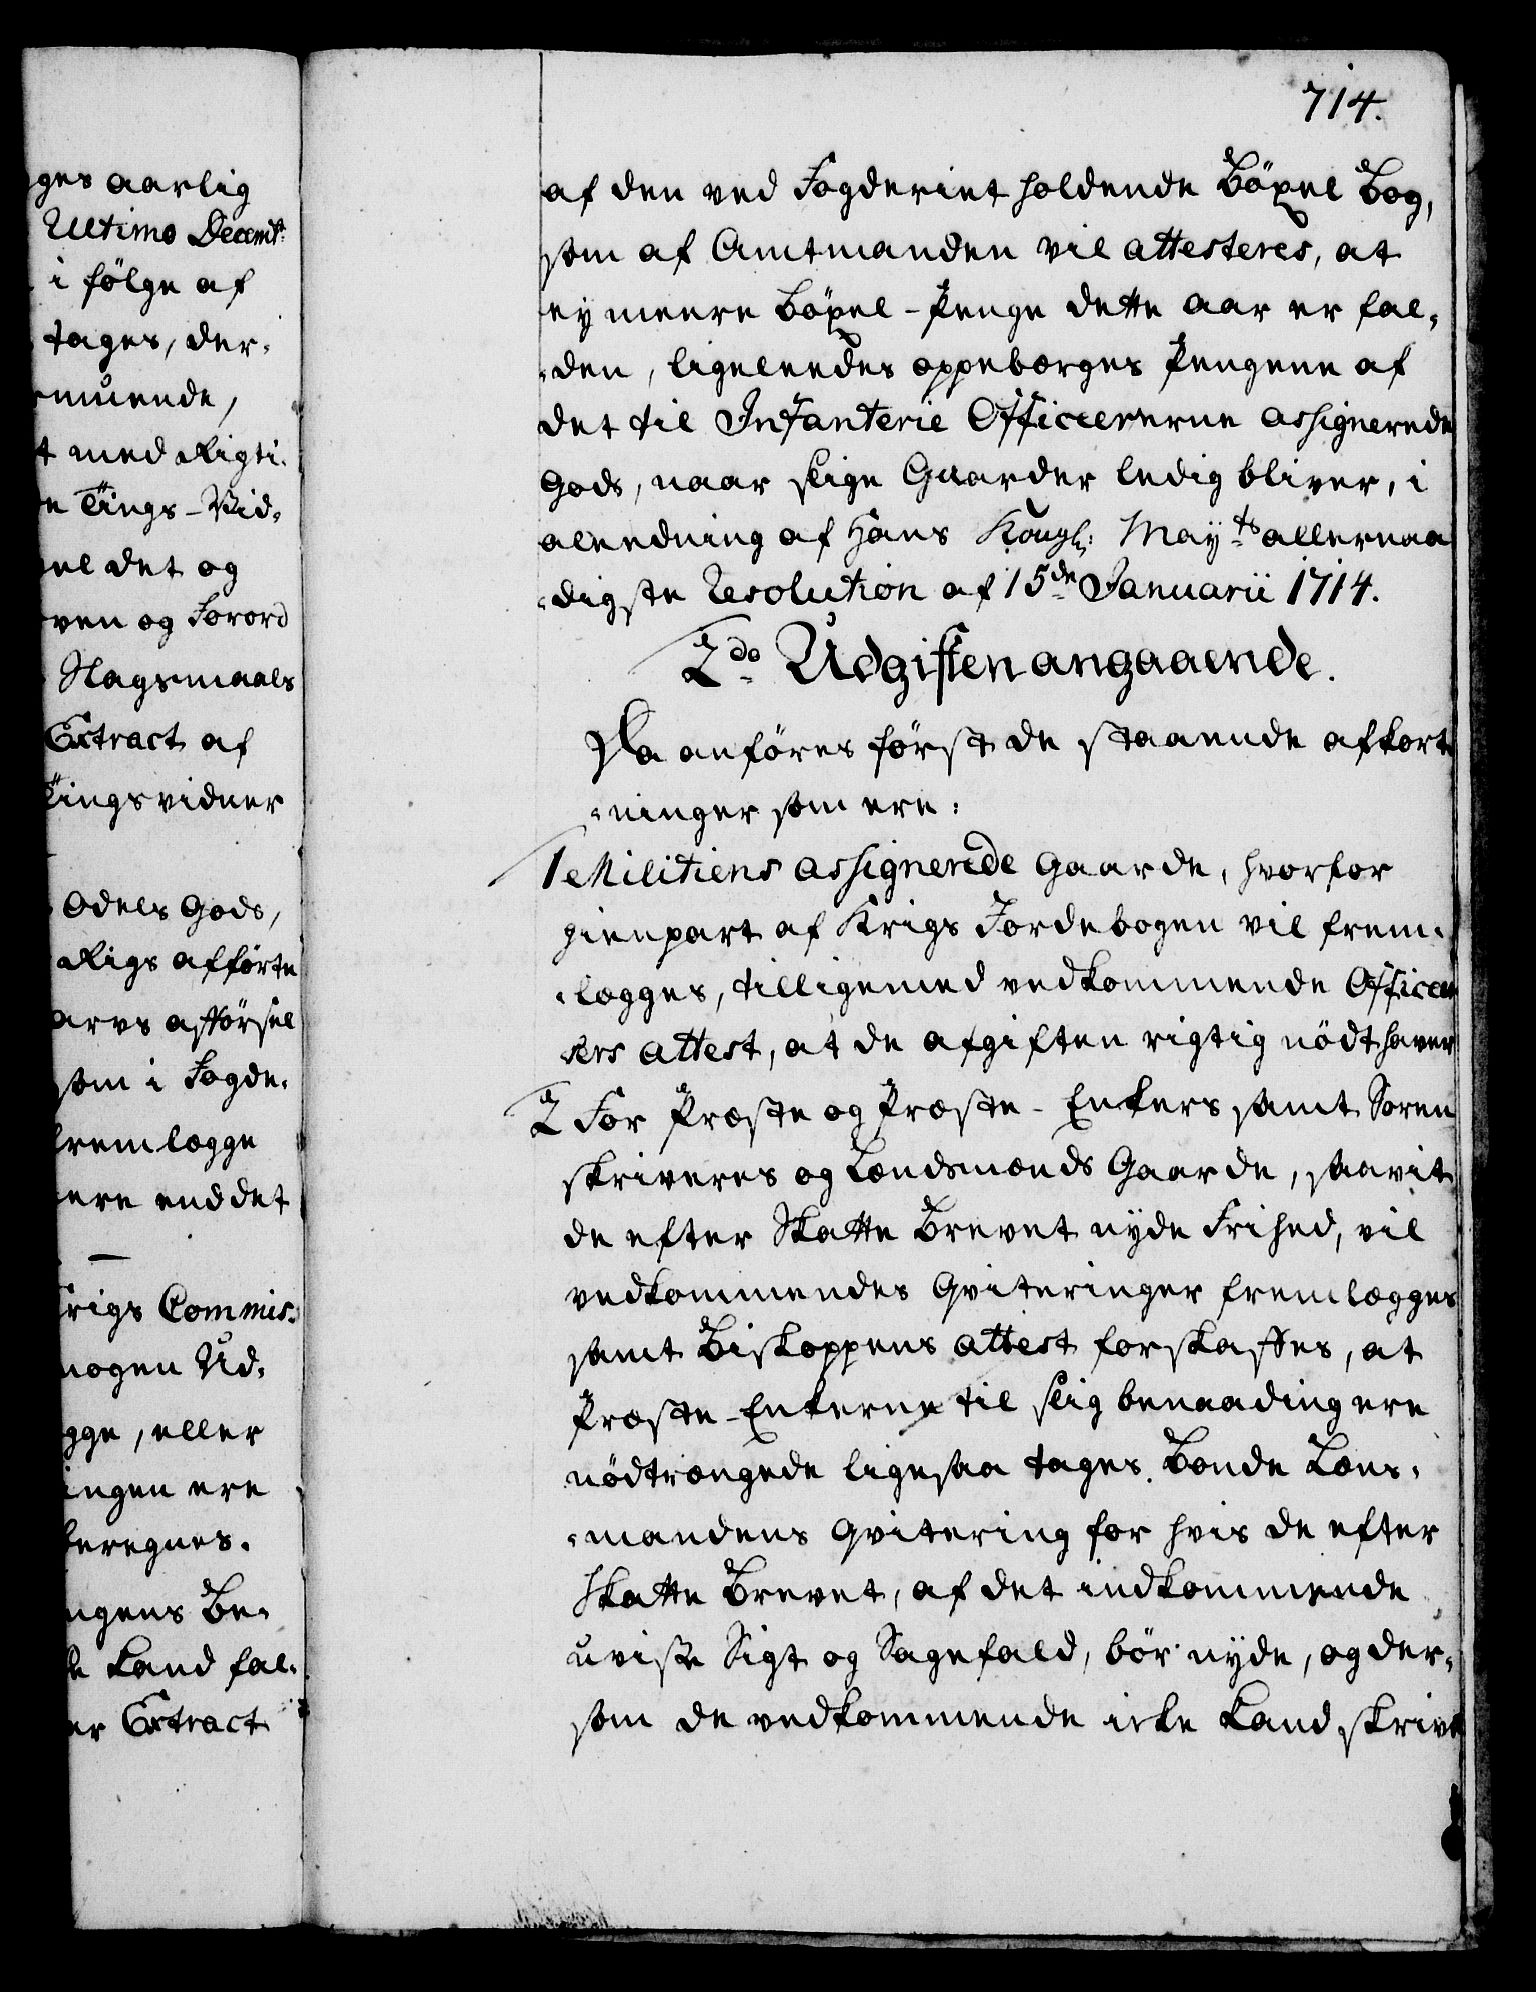 714.
ges aarlig
Ultimo Decemb:
i följe af
tages, der-
med Rigti-
Tings-Vid-
det og
ven og Forord
Klagsmaals
Extract af
Tingsvidner
Odels Gods,
Rigs afførte
arvs afförsel
som i Fogde-
fremlægge
ere end det
Krigs Commis-
nogen Ud-
gge, eller
ingen ere
beregnes.
ngens Be-
Land fal-
er Extract
af den ved Fogderiet holdende Böxel Bog,
som af Amtmanden vil attesteres, at
ey meere Böxel-Penge dette Aar er fal-
den, ligeleedes oppebærges Pengene af
det til Infanterie Officererne assignerede
Gods, naar slige Gaarder ledig bliver, i
aleedning af Hans Kongl: May:ts allernaa
digste Resolution af 15de Januarii 1714.
2do Udgiften angaaende.
Da anföres först de staaende afkort
ninger som ere:
1 Militiens assignerede Gaarde, hvorfor
gienpart af Krigs Jordebogen vil frem-
lægges, tilligemed vedkommende Officee
rers attest, at de afgiften rigtig nödt haver
2 For Præste og Præste-Enkers samt Soren
skriveres og Lændsmænds Gaarde, saavit
de efter Skatte Brevet nyde Frihed, vil
vedkommendes Qviteringer fremlægges
samt Biskoppens attest forskaffes, at
Præste-Enkerne til slig benaading ere
nödtrængede ligesaa tages Bonde Læns-
mandens Qvitering for hvis de efter
Skatte Brevet, af det indkommende
uvisse Sigt og Sagefald, bör nyde, og der-
som de vedkommende icke kand skrive